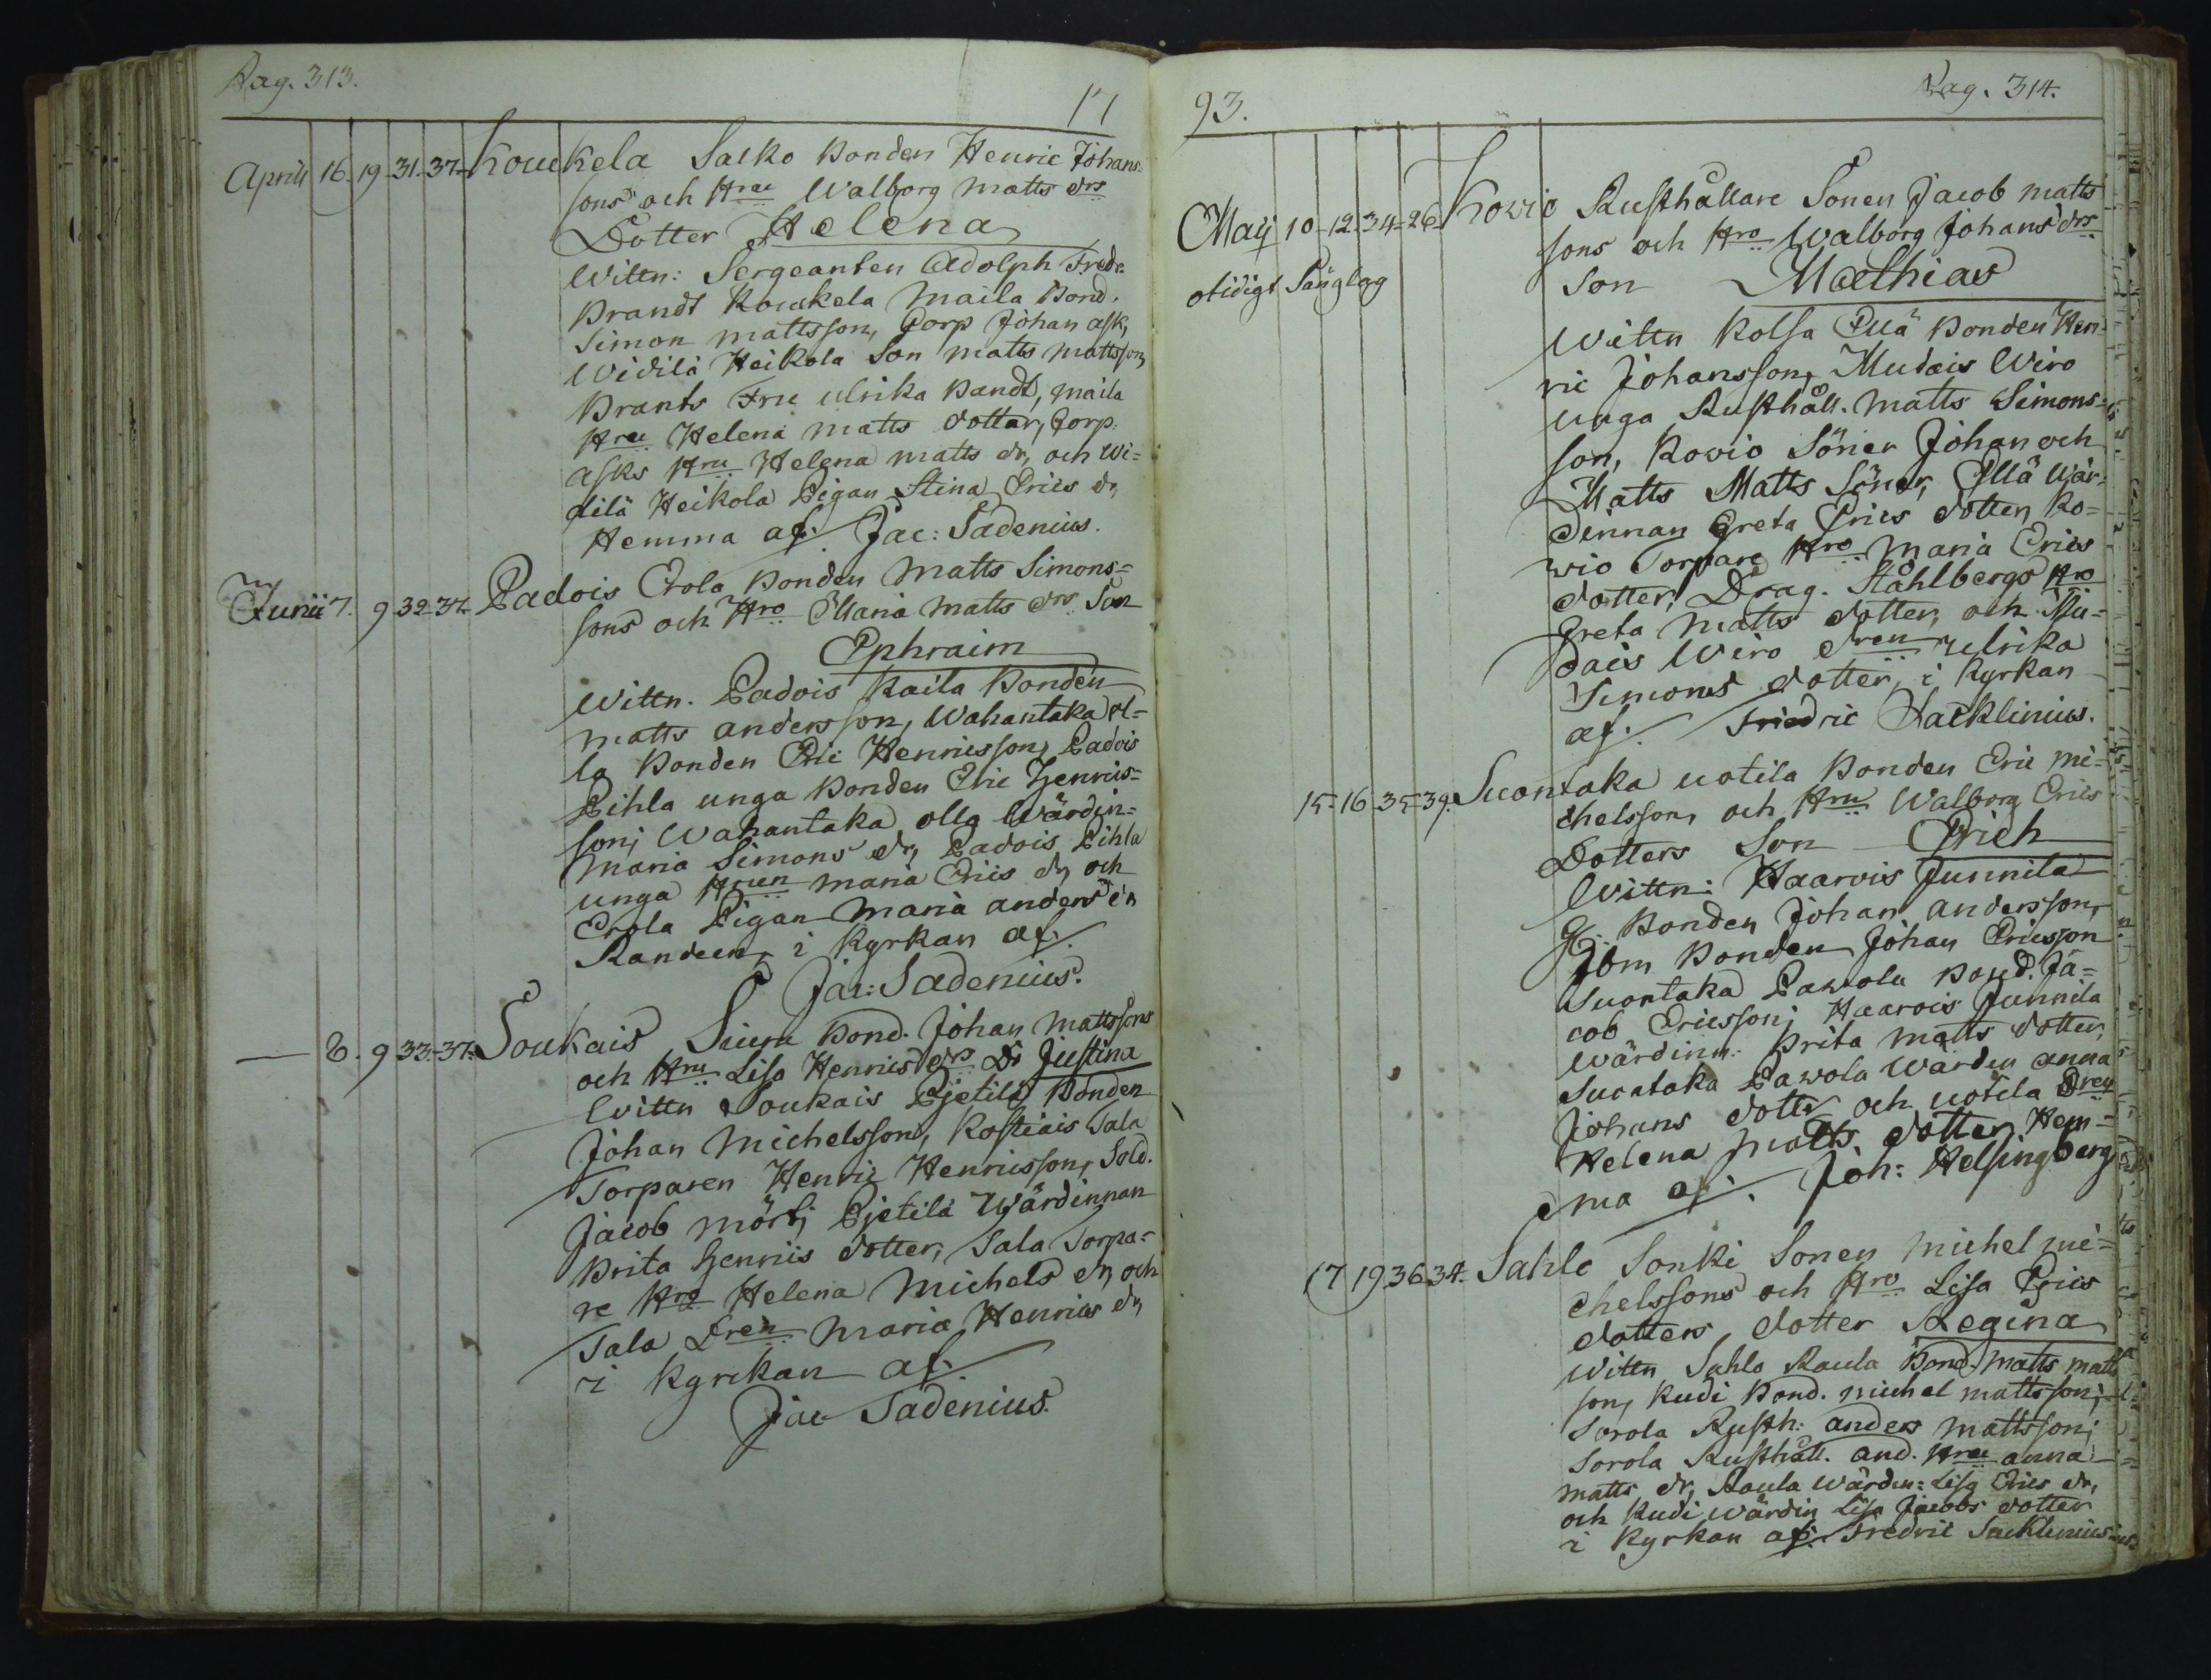 Pag. 313.
17
Aprill 16. 19. 31. 37. Koukela Saeko Bonden Henric Johans=
sons och Hru Walborg Matts drs
Dotter Helena
Wittn: Sergeanten Adolph Fredr.
Brandt Koukela Maila Bond.
Simon Mattsson, Corp Johan Ask,
Widilä Heikola Son Matts Mattsson,
Brants Fru Ulrika Bandt, Maila
Hru Helena Matts dotter, Corp.
Asks Hru Helena Matts dr, och Wi=
dilä Heikola Pigan Stina Erics dr,
Hemma af. Jac: Sadenius.
Junii 7. 9 32 37. Padois Erola Bonden Matts Simons=
sons och Hro Maria Matts drs Son
Ephraim
Wittn. Padois Kaila Bonden
Matts Andersson, Wahantaka Ol=
la Bonden Eric Henricsson, Padois
Pihla unga Bonden Eric Henrics=
son; Wahantaka Olla Wärdin=
Maria Simons dr, Padois Pihla
unga Hrun Maria Erics dr, och
Erola Pigan Maria Anders dr
Randeen, i Kyrkan af.
Jac: Sadenius.
— 8. 9 33. 37. Soukais Bond. Johan Mattssons
och Hru Lisa Henrics drs Dr Justina
Wittn Soukais Pjetilä Bonden
Johan Michelsson, Kostiais Tala
Torparen Henric Henricsson, Sold.
Jacob Mört; Pjetilä Wärdinnan
Brita Henrics dotter, Tala Torpa=
re Hro Helena Michels dr, och
Tala Dren Maria Henrics dr,
i Kyrkan af.
Jac Sadenius.
93.
Pag. 314.
Maij 10 12. 34. 26. Kovio Rusthållare Sonen Jacob Matts
sons och Hro Walborg Johans drs
otidigt Sänglag
Son Mathias
Wittn Kolsa Ellä Bonden Hen=
ric Johansson, Mudais Wiro
unga Rusthåll. Matts Simons=
son, Kovio Söner Johan och
Matts Matts Söner, Ellä Wär=
dinnan Greta Erics dotter, Ko=
wio Torpare Hro Maria Erics
dotter, Drag. Ståhlbergs Hro
Greta Matts dotter, och Mu=
dais Wiro dren Ulrika
Simons dotter, i Kyrkan
af. Friedric Sacklinius.
15. 16. 35. 39. Suontaka Uotila Bonden Eric Mi=
chelsson, och Hru Walborg Erics
Dotters Son Erich
Wittn: Haarois Junnila
G. Bonden Johan Andersson,
Ibm Bonden Johan Ericsson
Suontaka Pawola Bond. Ja=
cob Ericsson; Haarois Junnila
Wärdinn: Brita Matts dotter,
Suontaka Pawola Wärden Anna
Johans dotter och Uotila Dren
Helena Matts dotter, Hem=
ma af. Joh: Helsingberg
17 19 36 34. Sahlo Sonki Sonen Michel Mi=
chelssons och Hro Lisa Erics
dotters dotter Regina
Wittn Sahlo Raula Bond. Matts Matts
son, Kudi Bond. Michel Mattsson;
Sorola Rusth: Anders Mattsson;
Sorola Rusthåll. And. Hru Anna
Matts dr, Raula Wärdin: Lisa Erics dr,
och Kudi Wärdin Lisa Jacobs dotter
i Kyrkan af. Fredric Sacklinius